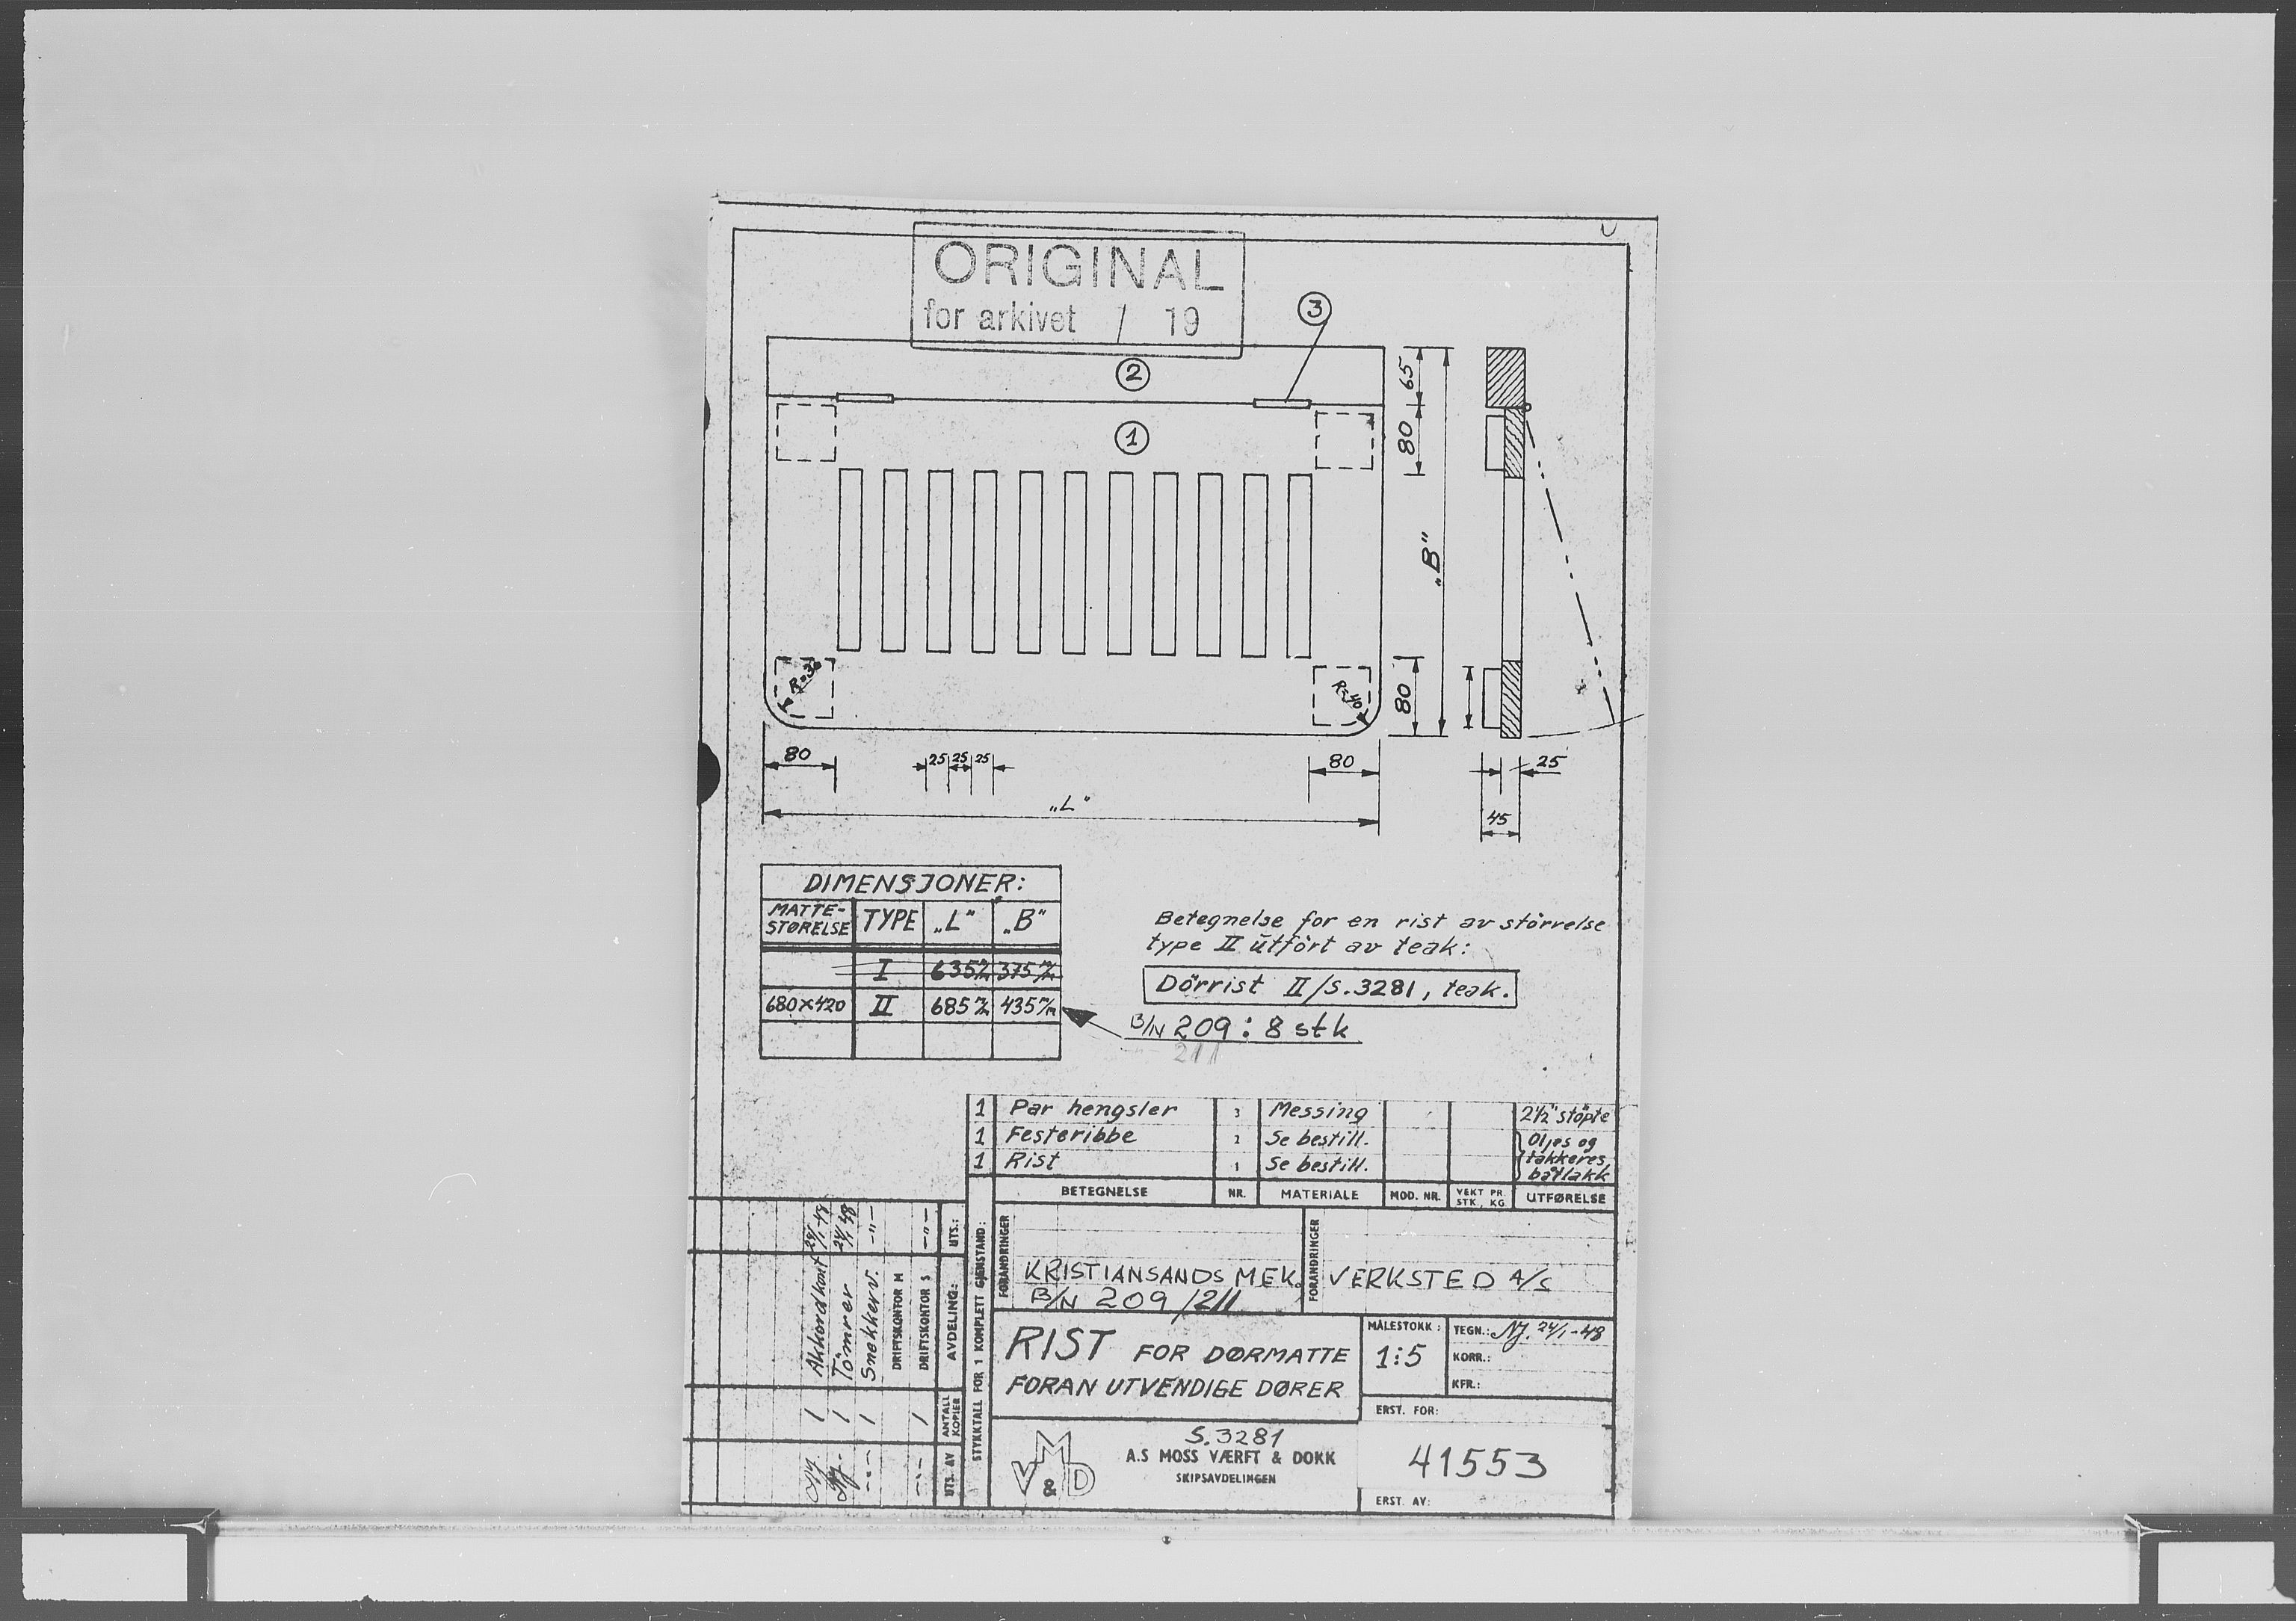 ORIGINAL
for arkivet / 19
3
2
1
65
80
„B"
80
R=30
R=40
80
25 25 25
80
„L"
25
45
DIMENSJONER:
MATTE-STØRELSE TYPE „L" „B"
I 635 m/m 375 m/m
680×420 II 685 m/m 435 m/m
Betegnelse for en rist av störrelse
type II utfört av teak:
Dörrist II/S.3281, teak.
B/N 209: 8 stk
211
1 Par hengsler 3 Messing 2½" støpte
1 Festeribbe 2 Se bestill. Oljes og
1 Rist 1 Se bestill. lakkeres
båtlakk
BETEGNELSE NR. MATERIALE MOD. NR. VEKT PR. STK., KG UTFØRELSE
STYKKTALL FOR 1 KOMPLETT GJENSTAND:
FORANDRINGER
FORANDRINGER
KRISTIANSANDS MEK. VERKSTED A/S
B/N 209/211
RIST FOR DØRMATTE
FORAN UTVENDIGE DØRER
MÅLESTOKK:
1:5
TEGN.: NJ. 24/1-48
KORR.:
KFR.:
ERST. FOR:
S.3281
A.S MOSS VÆRFT & DOKK
SKIPSAVDELINGEN
MV&D
41553
ERST. AV:
UTS. AV ANTALL KOPIER AVDELING: UTS.:
-"- 1 DRIFTSKONTOR S -"-
DRIFTSKONTOR M
-"- 1 Snekkerv. -"-
1 Tömrer 24/1-48
1 Akkordkont. 24/1-48